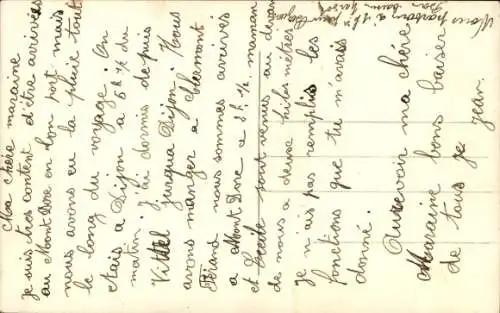 Ma chère maraine
Je suis tres content d'être arrivés
au Mont Dore en bon port mais
nous avons eu la pluie tout
le long du voyage. On
etais a Dijon a 5h ½ du
matin. J'ai dormis depuis
Vittel jusqua Dijon. Nous
avons manger a Clermont
Férand nous sommes arrivés
a Mont Dore a 2h ½ maman
et sont venus au devan
de nous a deuse kilos mètres
Je n'ais pas remplis les
fonctions que tu m'avais
donné.
Aurevoir ma chère
Maraine bons baiser
de tous Jean.
Nous partons à